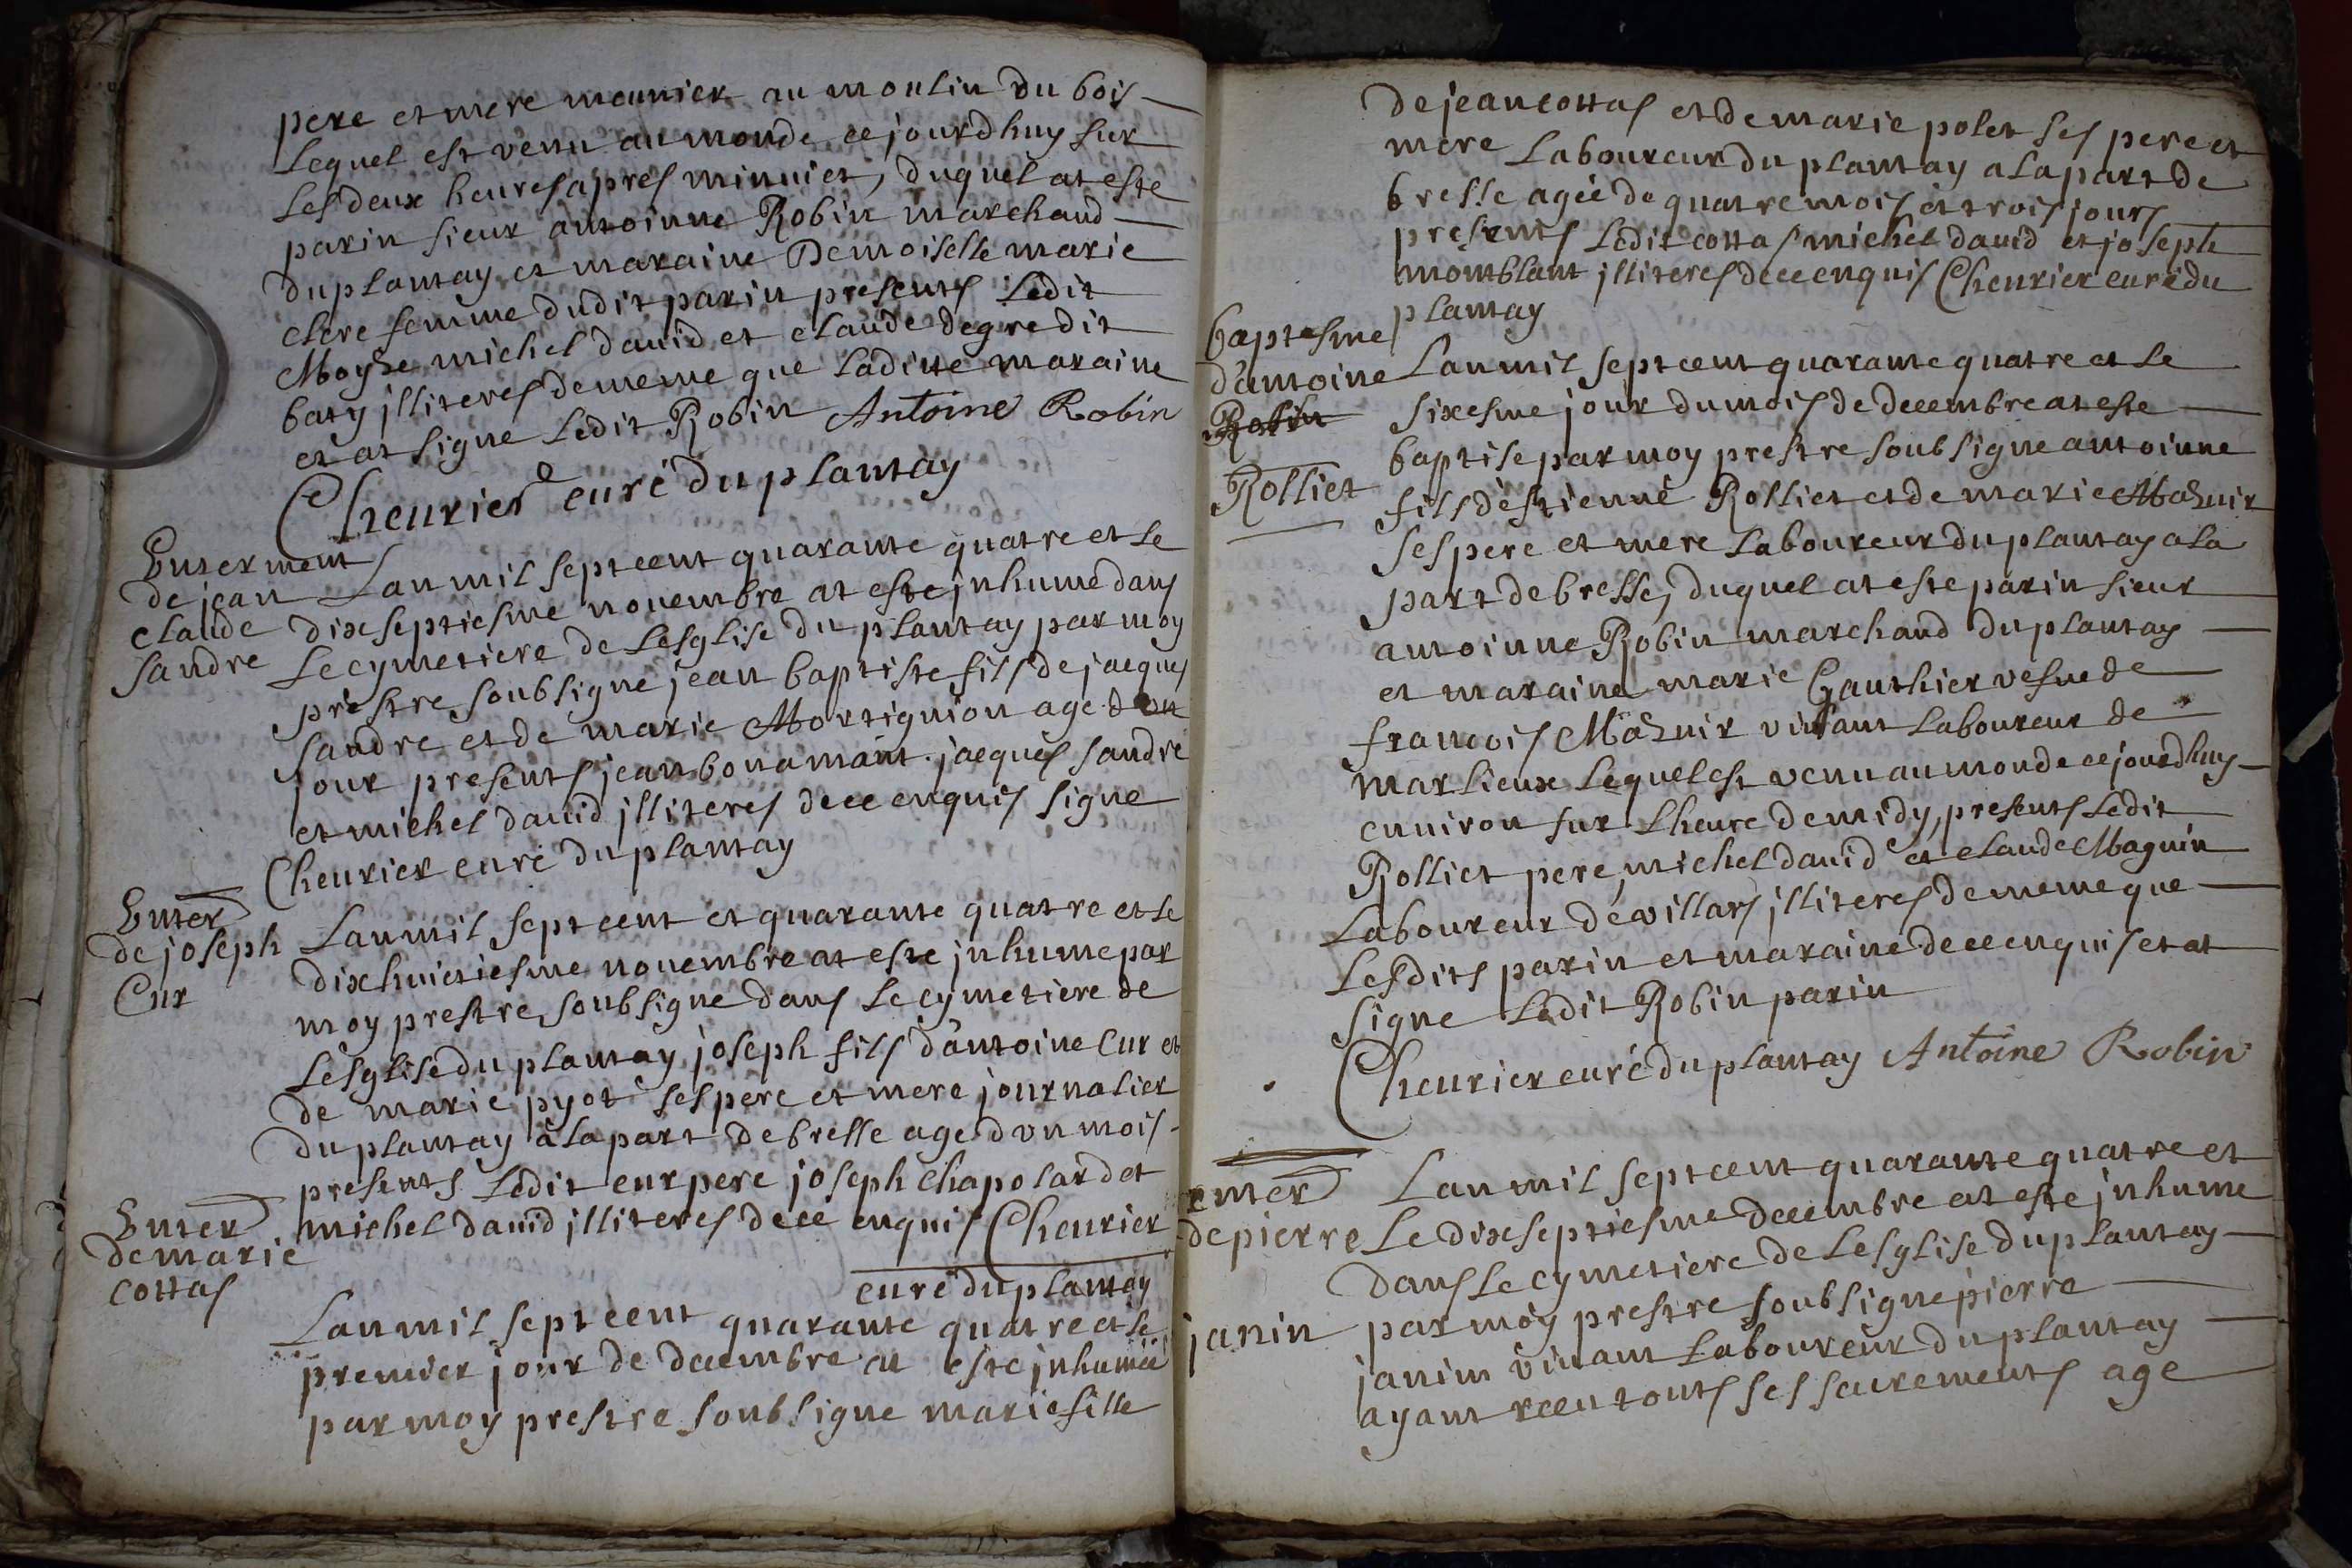 pere et mere meunier au moulin du bois
lequel est venu au monde ce jourdhuy sur
les deux heures apres minniet, duquel at este
parin sieur antoinne Robin marchand
du plantay et maraine Demoiselle marie
clere femme dudit parin presents ledit
Moyse michel david et claude degre dit
baty jlliteres de meme que ladite maraine
et at signe ledit Robin Antoine Robin
Cheurier curé du plantay
Enterment
de jean
claude
sandre
Lan mil sept cent quarante quatre et le
dixseptiesme nouembre at este jnhumé dans
le cymetiere de lesglise du plantay par moy
prestre soubsigne jean baptiste fils de jacques
sandre et de marie Mortignion age dun
jour presents jean bonamant jacques sandre
et michel dauid jlliteres de ce enquis signe
Cheurier curé du plantay
Enter
de joseph
Cur
Lan mil sept cent et quarante quatre et le
dixhuictiesme nouembre at este jnhume par
moy prestre soubsigné dans le cymetiere de
lesglise du plantay joseph fils dantoine Cur et
de marie pyot ses pere et mere journalier
du plantay à la part de bresse age dvn mois
presents ledit cur pere joseph Chapolard et
michel dauid jlliteres de ce enquis Cheurier
curé du plantay
Enter
de marie
cottas
Lan mil sept cent quarante quatre et le
premier jour de decembre at este jnhumée
par moy prestre soubsigne marie fille
de jean cottas et de marie polet ses pere et
mere laboureur du plantay a la part de
bresse agée de quatre mois et trois jours
presents ledit cottas michel dauid et joseph
momblant jlliteres de ce enquis Cheurier curé du
plantay
baptesme
d'antoine
Robin
Rolliet
Lan mil sept cent quarante quatre et le
sixesme jour du mois de decembre at este
baptise par moy prestre soubsigne antoinne
fils déstienne Rolliet et de marie Maznir
ses pere et mere laboureur du plantay a la
part de bresse, duquel at este parin sieur
antoinne Robin marchand du plantay
et maraine marie Gauthier vefue de
francois Maznir viuant laboureur de
marlieux lequel est venu au monde ce jourdhuy
enuiron sur l heure de midy, presents ledit
Rolliet pere, michel dauid et claude Maguin
laboureur de villars jlliteres de meme que
lesdits parin et maraine de ce enquis et at
signe ledit Robin parin
Cheurier curé du plantay Antoine Robin
enter
de pierre
janin
Lan mil sept cent quarante quatre et
le dixseptiesme decembre at este jnhume
dans le cymetiere de lesglise du plantay
par moy prestre soubsigne pierre
janin viuant laboureur du plantay
ayant receu touts ses sacrements age